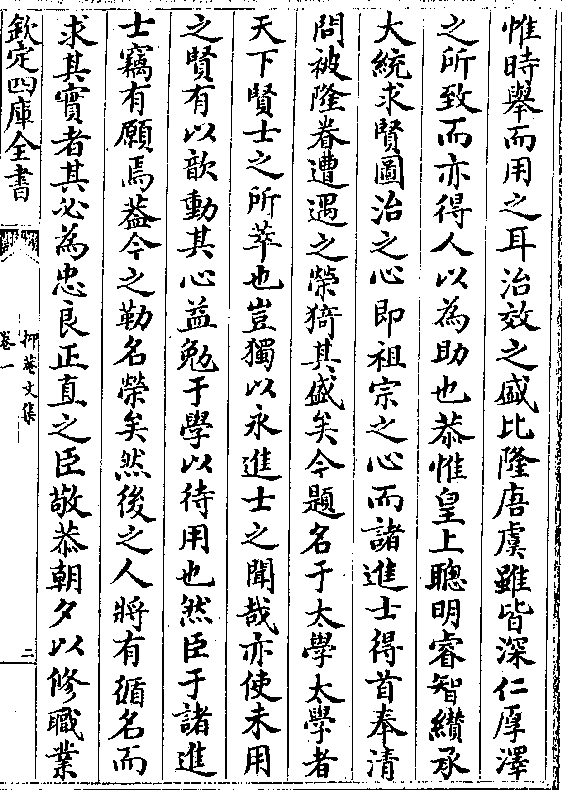 惟時舉而用之耳治效之盛比隆唐虞雖皆深仁厚澤
之所致而亦得人以為助也恭惟皇上聰明睿智纘承
大統求賢圖治之心即祖宗之心而諸進士得首奉清
問被隆眷遭遇之榮猗其盛矣今題名于太學太學者
天下賢士之所萃也豈獨以永進士之聞哉亦使未用
之賢有以歆動其心益勉于學以待用也然臣于諸進
士竊有願焉葢今之勒名榮矣然後之人將有循名而
求其實者其必為忠良正直之臣敬恭朝夕以修職業
欽定四庫全書
抑菴文集
卷一
二